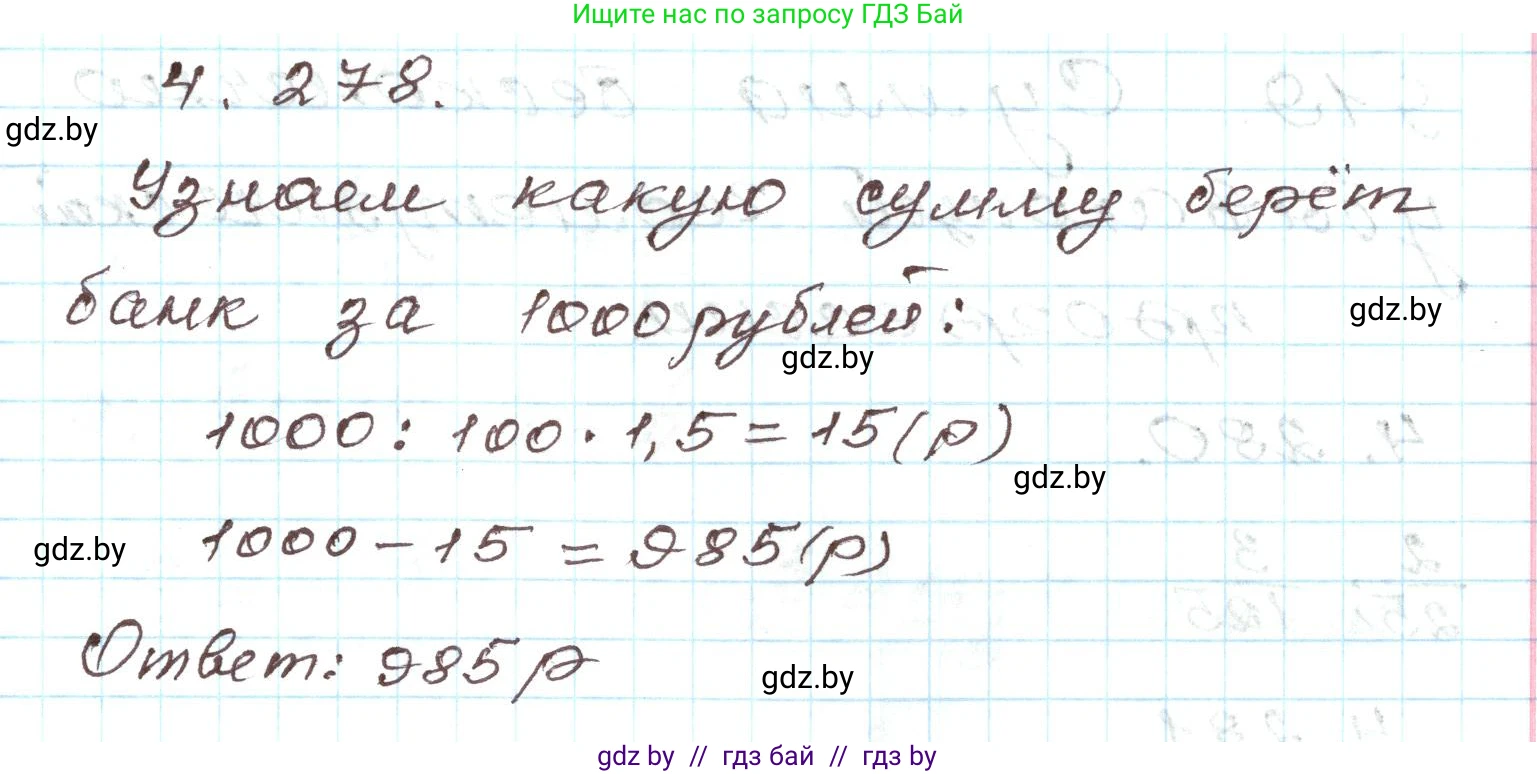 Ищите нас по запросу ГДЗ Бай
4. 278.
gdz.by
Узнаем какую сумму берёт
банк за 1000 рублей:
gdz.by
gdz.by
1000 : 100 · 1,5 = 15 (р)
gdz.by
1000 - 15 = 985 (р)
gdz.by
Ответ: 985 р
gdz.by
gdz by // гдз бай // гдз by